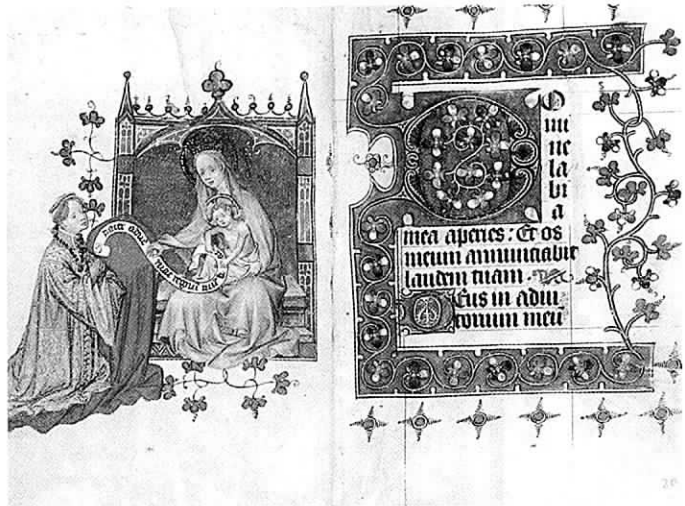 DO
mi
ne
la
bi
a
mea aperies: Et os
meum annunciabit
laudem tuam.
DEus in adiu
torium meū
20